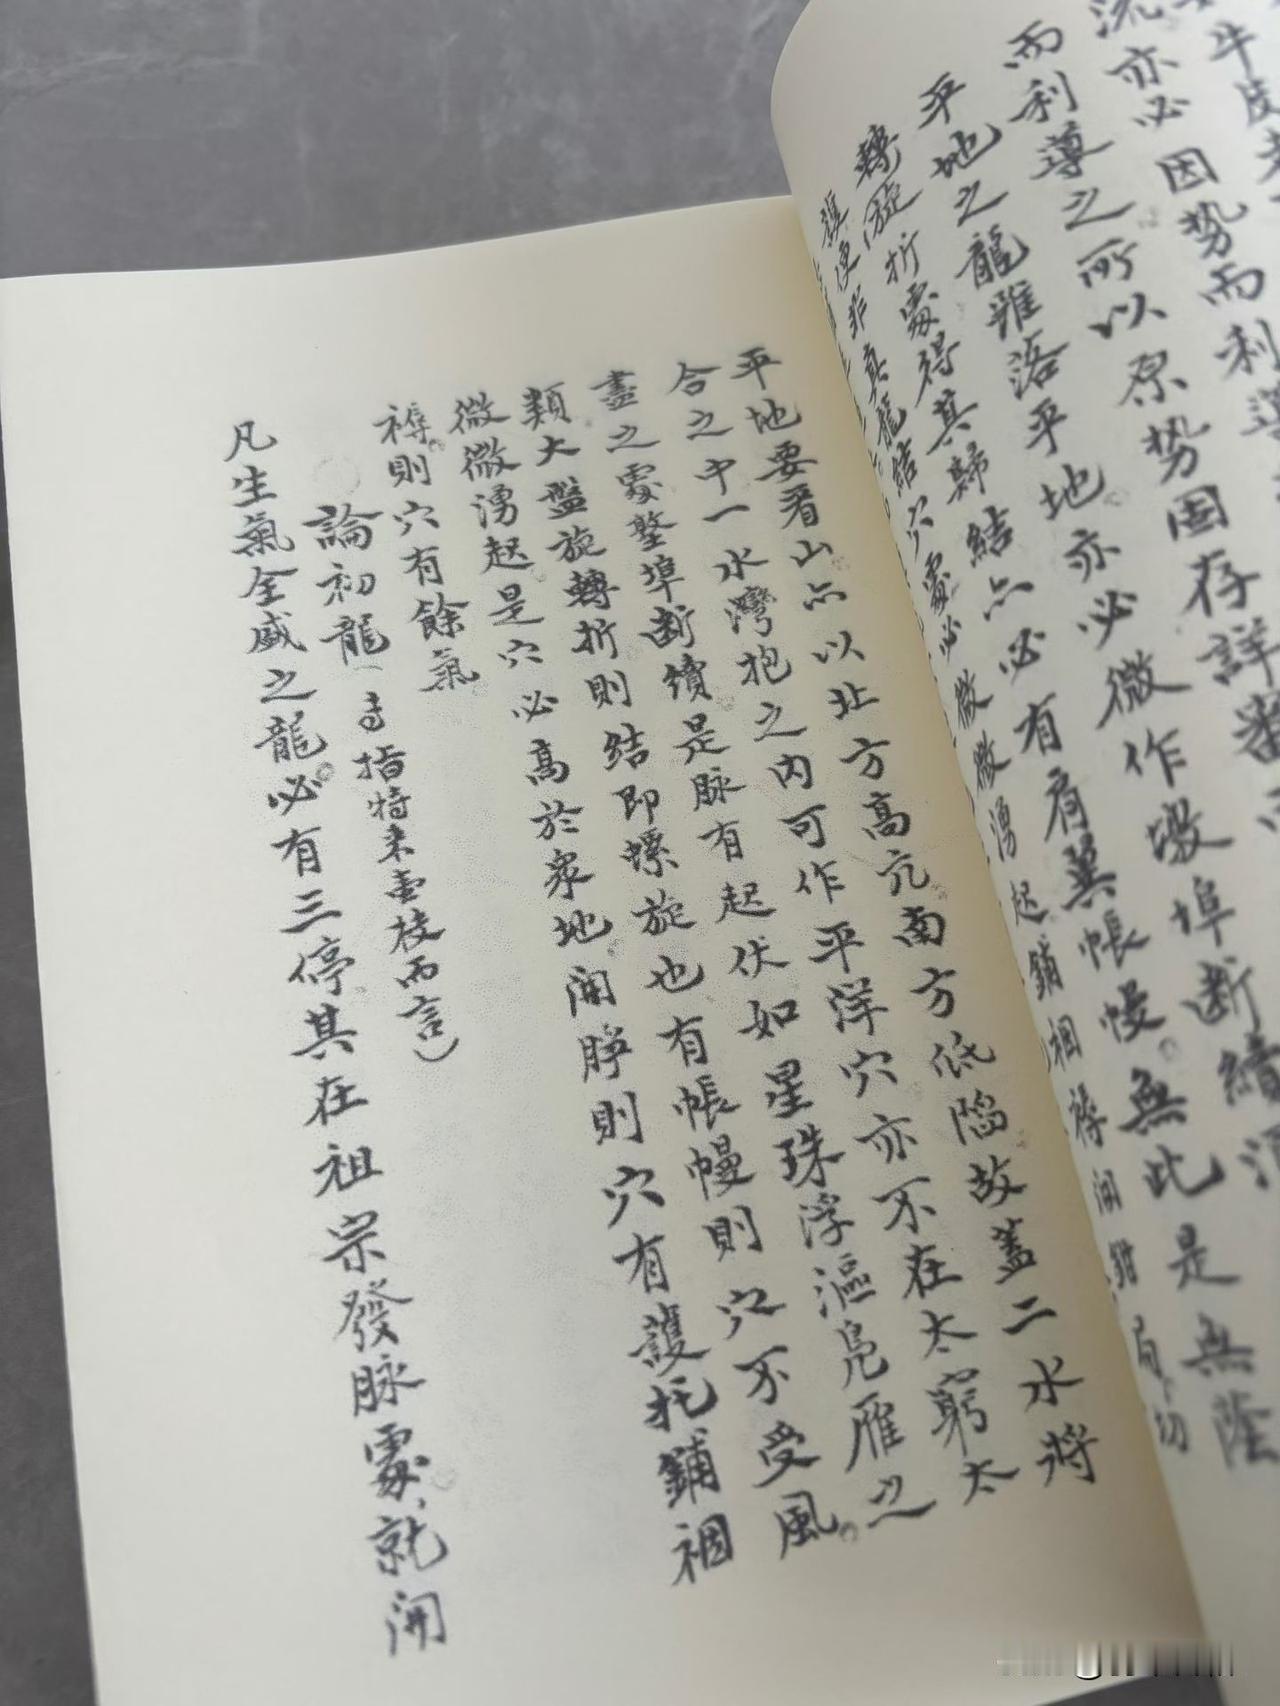 牛皮
流亦必因势而利
而利導之所以原势固存詳審
平地之龍雖落平地亦必微作墩埠断續
轉旋折處得其歸結亦必有肩翼帳幔無此是無蔭
便非真龍結穴處必微微湧起鋪裀褥開鉗有
平地要看山亦以北方高亢南方低陷故蓋二水將
合之中一水灣抱之内可作平洋穴亦不在太窮太
盡之處墪埠断續是脉有起伏如星珠浮漚凫雁之
類大盤旋轉折則結即螺旋也有帳幔則穴不受風
微微湧起是穴必高於衆地開睜則穴有護托鋪裀
褥則穴有餘氣
論初龍（專指特来壹枝而言）
凡生氣全盛之龍必有三停其在祖宗發脉處就開